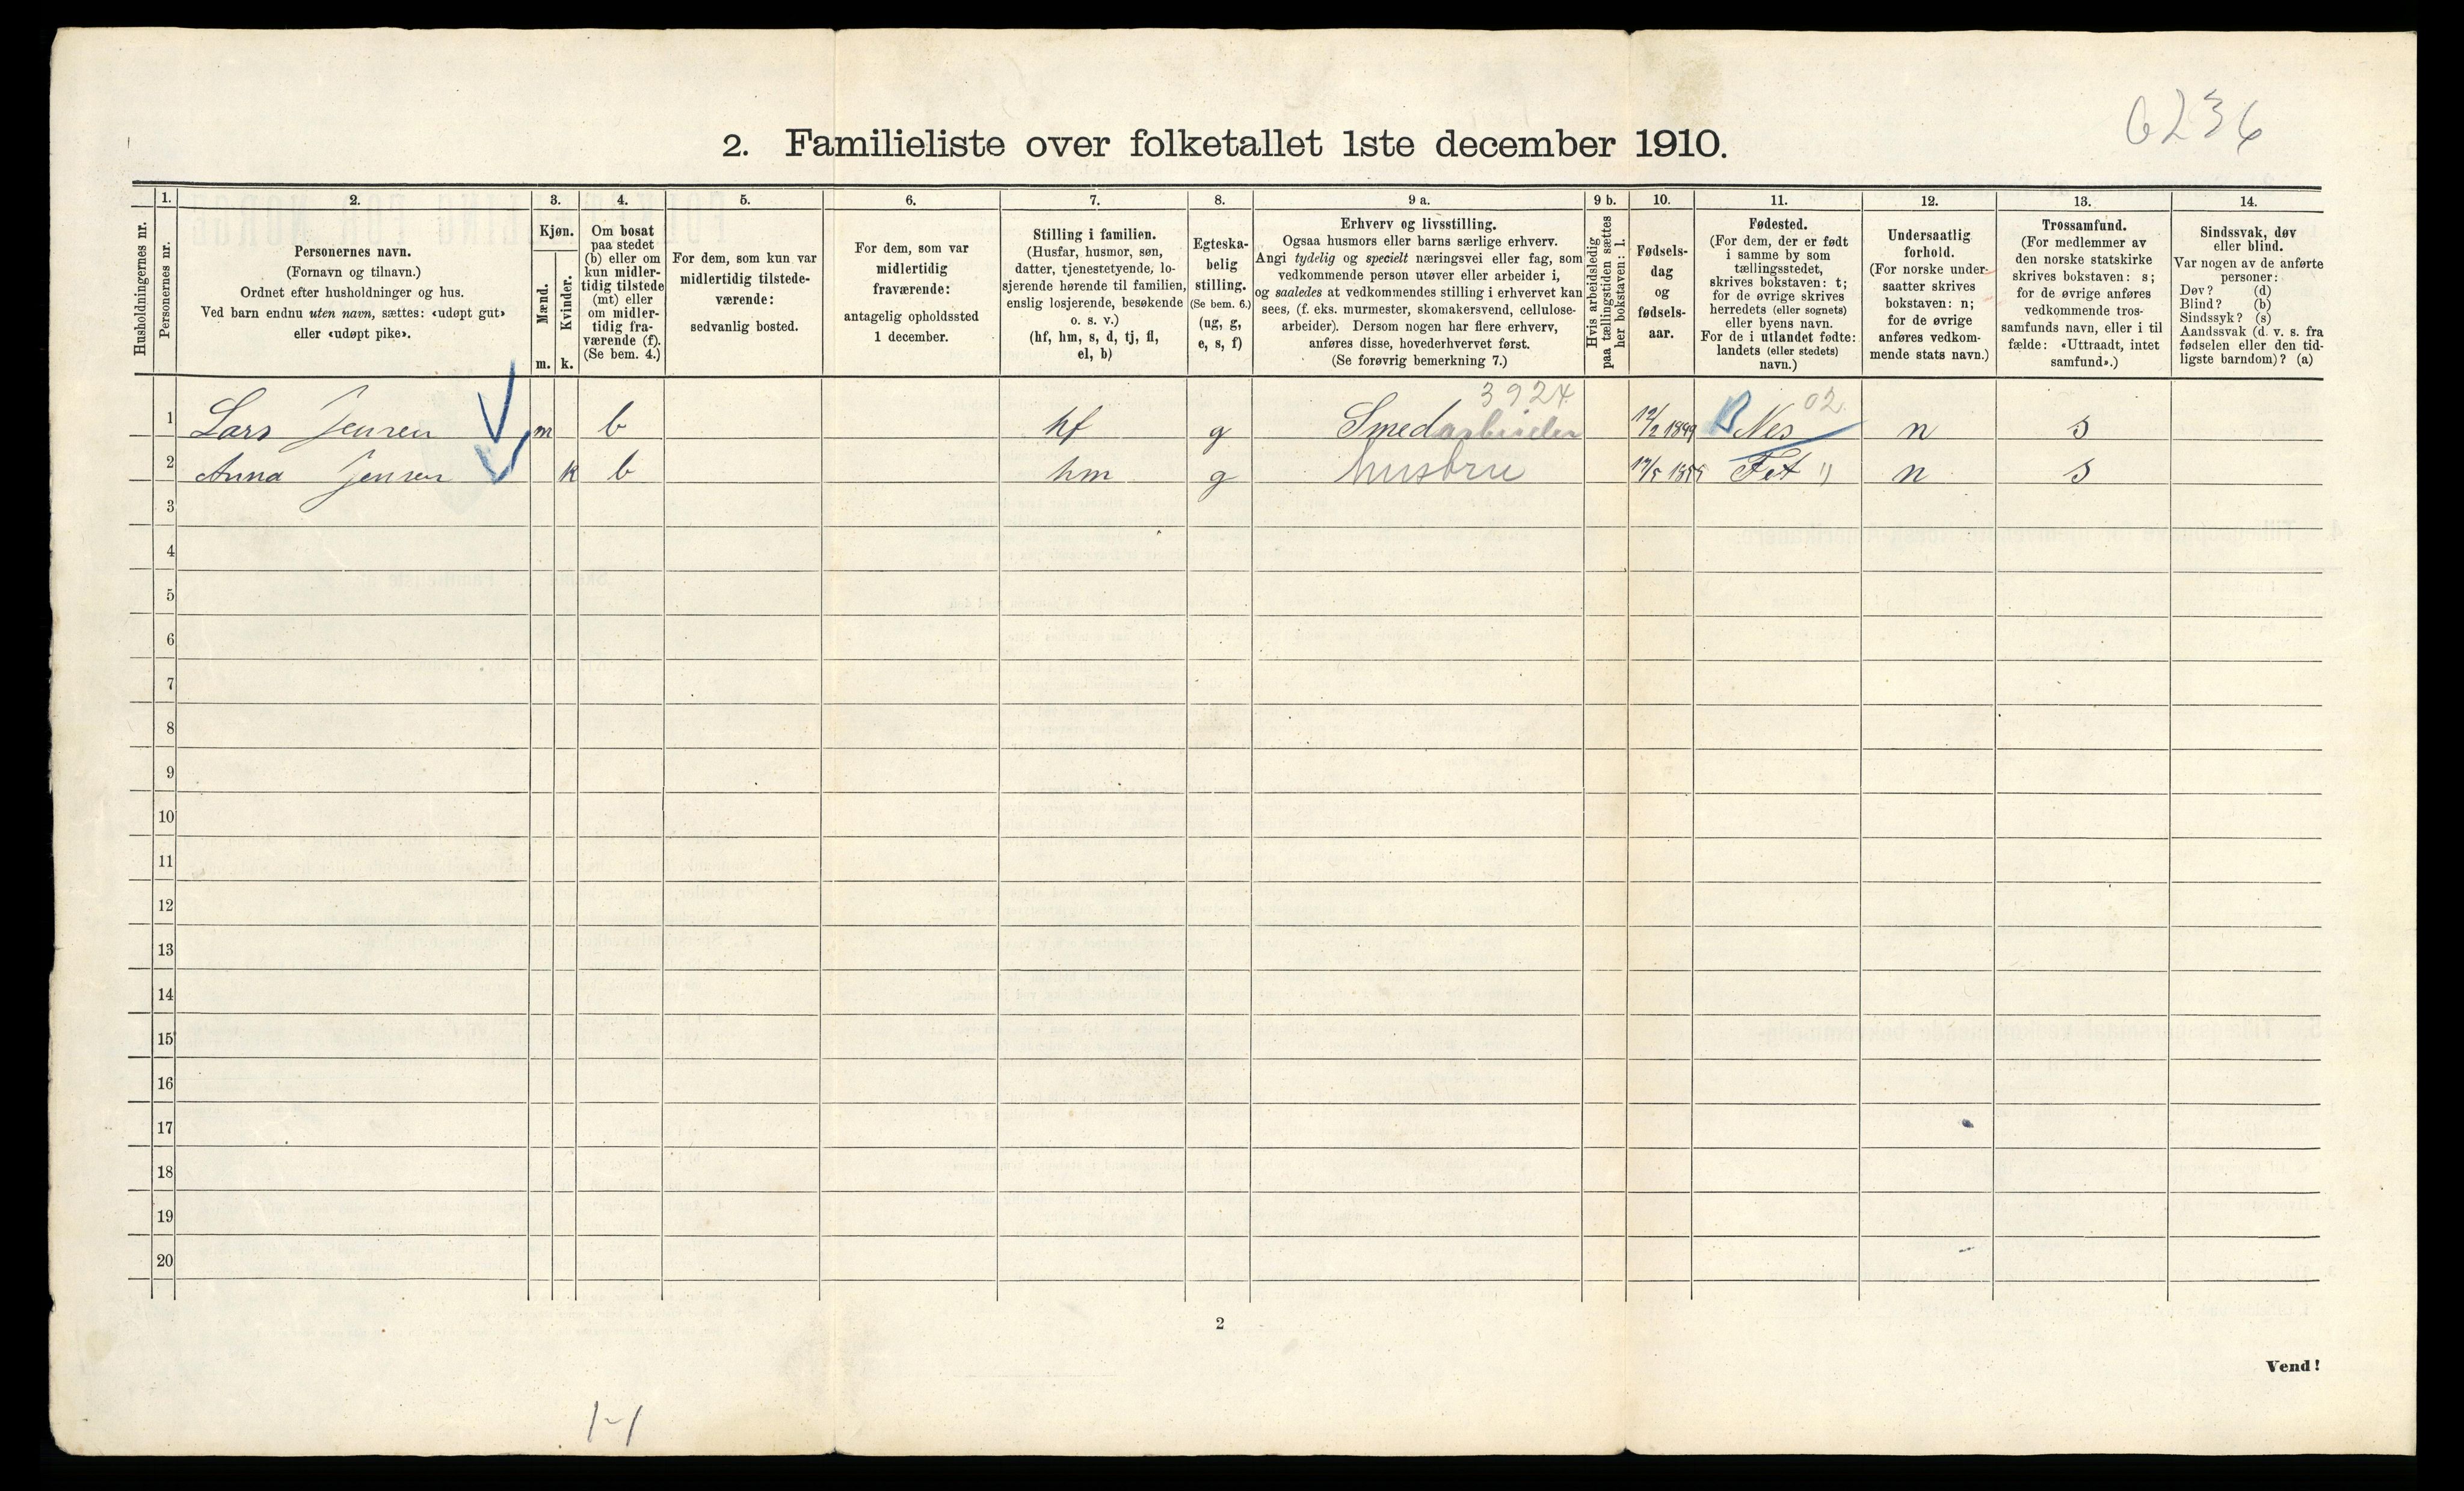 6236
2. Familieliste over folketallet 1ste december 1910.
Husholdningernes nr.
1.
Personernes nr.
2.
Personernes navn.
(Fornavn og tilnavn.)
Ordnet efter husholdninger og hus.
Ved barn endnu uten navn, sættes: «udøpt gut»
eller «udøpt pike».
3.
Kjøn.
Mænd.
Kvinder.
m. k.
4.
Om bosat
paa stedet
(b) eller om
kun midler-
tidig tilstede
(mt) eller
om midler-
tidig fra-
værende (f).
(Se bem. 4.)
5.
For dem, som kun var
midlertidig tilstede-
værende:
sedvanlig bosted.
6.
For dem, som var
midlertidig
fraværende:
antagelig opholdssted
1 december.
7.
Stilling i familien.
(Husfar, husmor, søn,
datter, tjenestetyende, lo-
sjerende hørende til familien,
enslig losjerende, besøkende
o. s. v.)
(hf, hm, s, d, tj, fl,
el, b)
8.
Egteska-
belig
stilling.
(Se bem. 6.)
(ug, g,
e, s, f)
9 a.
Erhverv og livsstilling.
Ogsaa husmors eller barns særlige erhverv.
Angi tydelig og specielt næringsvei eller fag, som
vedkommende person utøver eller arbeider i,
og saaledes at vedkommendes stilling i erhvervet kan
sees, (f. eks. murmester, skomakersvend, cellulose-
arbeider). Dersom nogen har flere erhverv,
anføres disse, hovederhvervet først.
(Se forøvrig bemerkning 7.)
9 b.
Hvis arbeidsledig
paa tællingstiden sættes
her bokstaven: l.
10.
Fødsels-
dag
og
fødsels-
aar.
11.
Fødested.
(For dem, der er født
i samme by som
tællingsstedet,
skrives bokstaven: t;
for de øvrige skrives
herredets (eller sognets)
eller byens navn.
For de i utlandet fødte:
landets (eller stedets)
navn.)
12.
Undersaatlig
forhold.
(For norske under-
saatter skrives
bokstaven: n;
for de øvrige
anføres vedkom-
mende stats navn.)
13.
Trossamfund.
(For medlemmer av
den norske statskirke
skrives bokstaven: s;
for de øvrige anføres
vedkommende tros-
samfunds navn, eller i til
fælde: «Uttraadt, intet
samfund».)
14.
Sindssvak, døv
eller blind.
Var nogen av de anførte
personer:
Døv? (d)
Blind? (b)
Sindssyk? (s)
Aandssvak (d. v. s. fra
fødselen eller den tid-
ligste barndom)? (a)
3924 02
1 Lars Jensen m b hf g Smedarbeider Nes n s
2 Anna Jensen k b hm g husbru Fet n s
3
4
5
6
7
8
9
10
11
12
13
14
15
16
17
18
19
20
2
Vend!
1-1